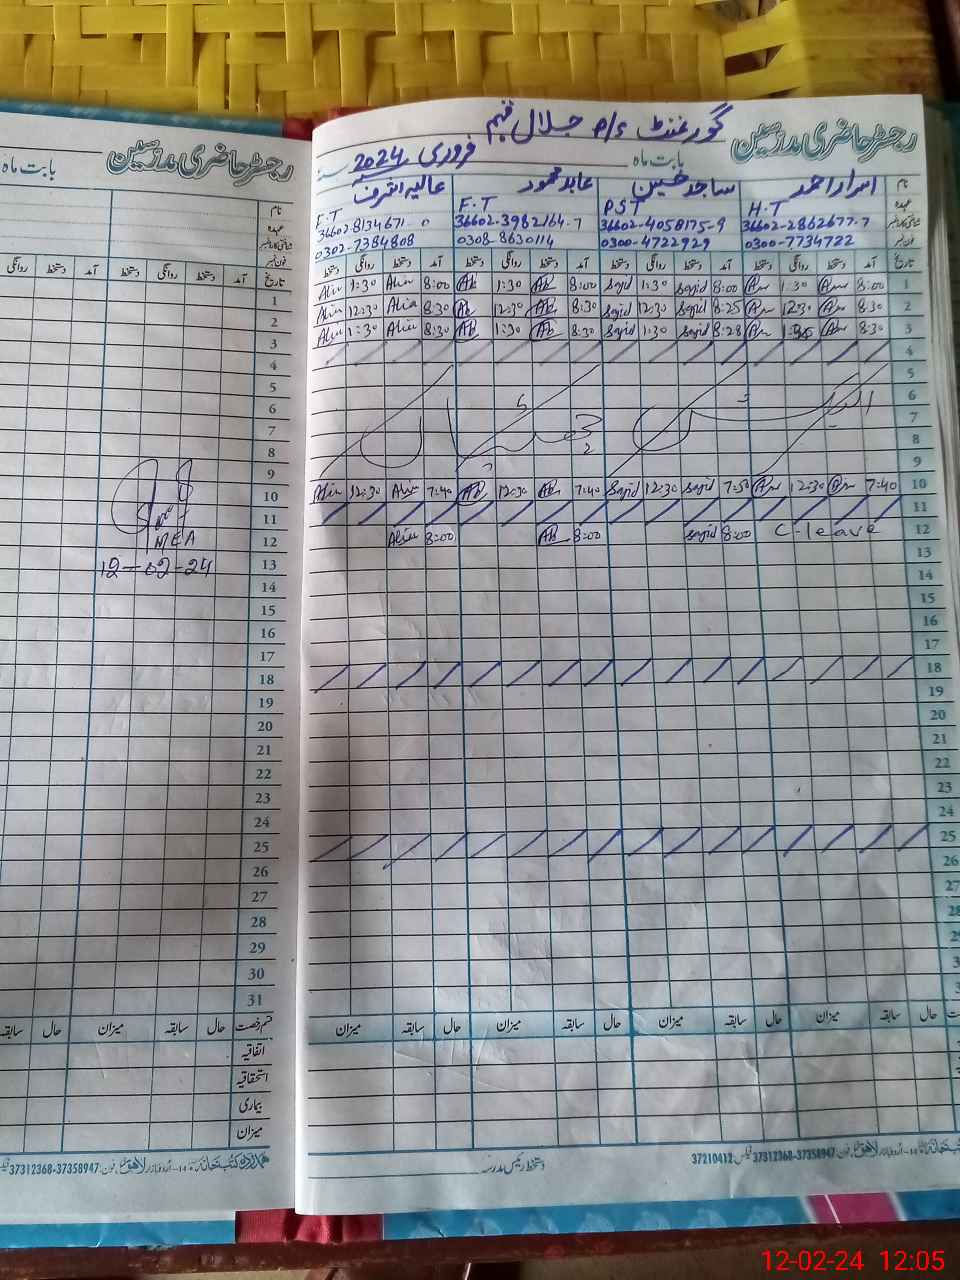 گورنمنٹ p/s جلال فہیم
رجسٹر حاضری مدرسین
بابت ماہ فروری 2024
نام اسرار احمد ساجد حسین عابد محمود عالیہ اشرف
عہدہ H.T PST F.T F.T
36602-2862677-7 36602-4058175-9 36602-3982164-7 36602-8134671-0
فون نمبر 0300-7734722 0300-4722929 0308-8630114 0302-7384808
تاریخ آمد دستخط روانگی دستخط آمد دستخط روانگی دستخط آمد دستخط روانگی دستخط آمد دستخط روانگی دستخط
1 8:00 1:30 8:00 Sajid 1:30 Sajid 8:00 AB 1:30 AB 8:00 Alia 1:30 Alia
2 8:30 12:30 8:25 Sajid 12:30 Sajid 8:30 AB 12:30 AB 8:30 Alia 12:30 Alia
3 8:30 8:28 Sajid 1:30 Sajid 8:30 AB 1:30 AB 8:30 Alia 1:30 Alia
4
5
6
7
8
9
10 7:40 12:30 7:50 Sajid 12:30 Sajid 7:40 AB 12:30 AB 7:40 Alia 12:30 Alia
11
12 C-leave 8:00 Sajid 8:00 AB 8:00 Alia
13
14
15
16
17
18
19
20
21
22
23
24
25
26
27
28
حال سابقہ میزان حال سابقہ میزان حال سابقہ میزان حال سابقہ میزان
دستخط رئیس مدرسہ
37210412 فیکس 37312368-37358947
رجسٹر حاضری مدرسین
بابت ماہ
نام
عہدہ
فون نمبر
تاریخ آمد دستخط روانگی دستخط آمد دستخط روانگی
1
2
3
4
5
6
7
8
9
10
11
12
13
14
15
16
17
18
19
20
21
22
23
24
25
26
27
28
29
30
31
MEA
12-02-24
قسم رخصت حال سابقہ میزان حال سابقہ
اتفاقیہ
استحقاقیہ
بیماری
میزان
ہمدرد کتب خانہ اردو بازار لاہور فون: 37312368-37358947
12-02-24 12:05